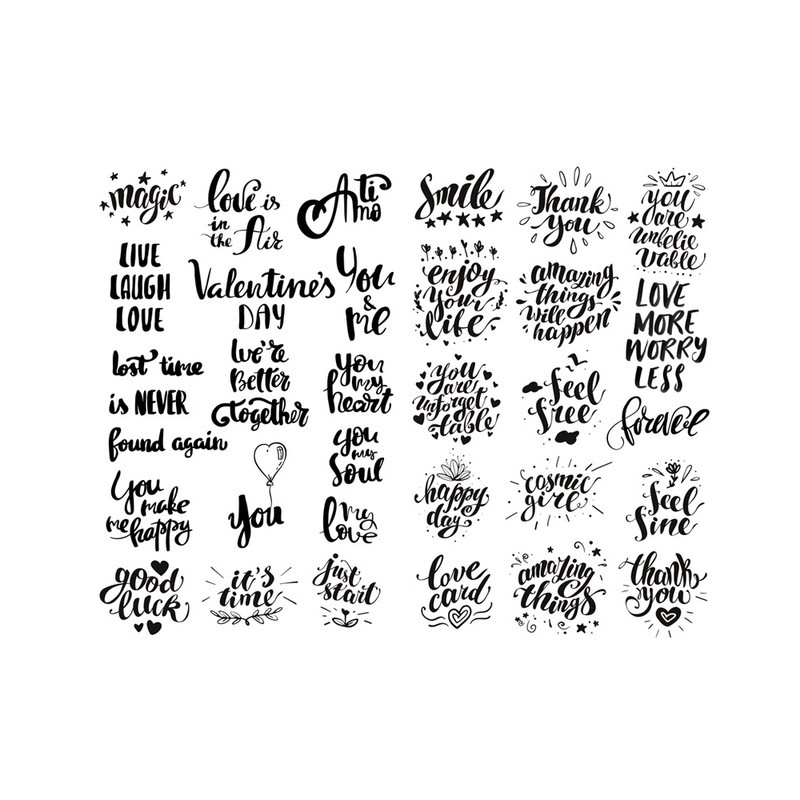 magic
LIVE
LAUGH
LOVE
lost time
is NEVER
found again
You
make
me happy
good
luck
love is
in
the Air
Valentine's
DAY
We're
Better
together
you
it's
time
Ti
Amo
You
&
me
you
my
heart
you
my
Soul
my
love
just
start
Smile
enjoy
your
life
you
are
unforget
table
happy
day
love
card
Thank
you
amazing
things
will
happen
feel
free
cosmic
girl
amazing
things
you
are
unbelie
vable
LOVE
MORE
WORRY
LESS
forever
feel
fine
thank
you